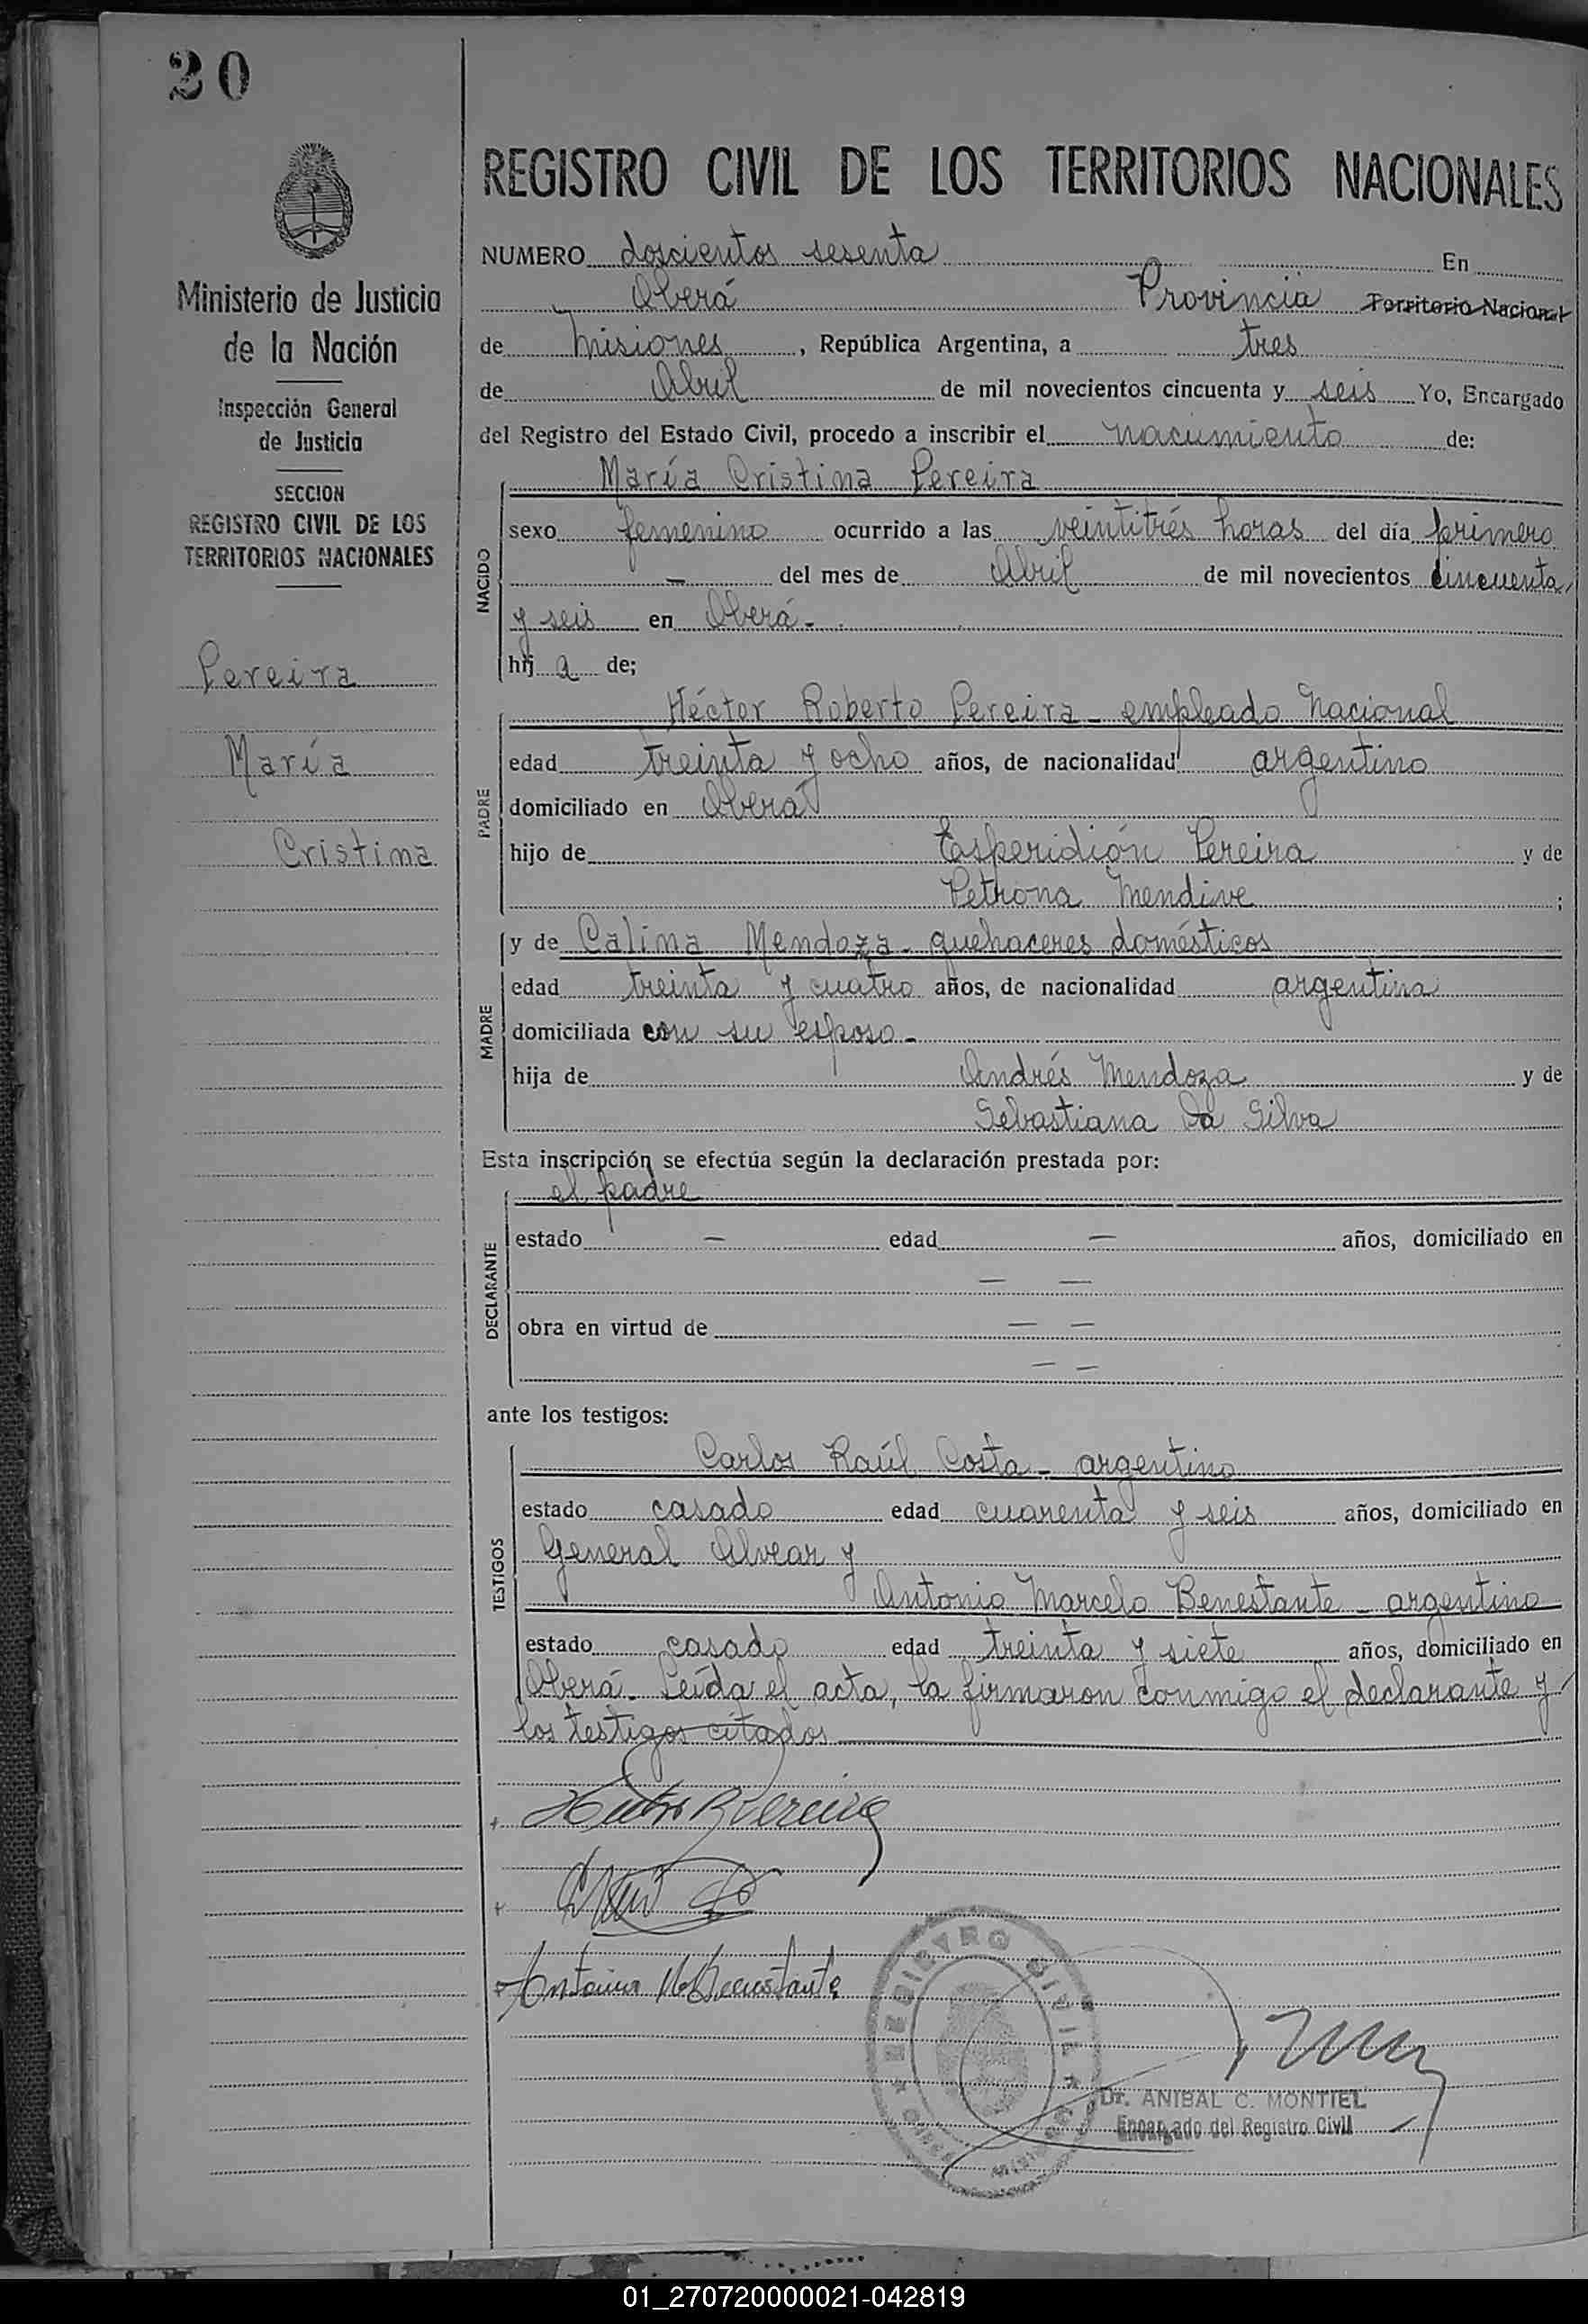 20
Ministerio de Justicia
de la Nación
Inspección General
de Justicia
SECCION
REGISTRO CIVIL DE LOS
TERRITORIOS NACIONALES
Pereira
María
Cristina
REGISTRO CIVIL DE LOS TERRITORIOS NACIONALES
NUMERO doscientos sesenta En
Oberá Provincia Territorio Nacional
de Misiones, República Argentina, a tres
de Abril de mil novecientos cincuenta y seis Yo, Encargado
del Registro del Estado Civil, procedo a inscribir el nacimiento de:
NACIDO
María Cristina Pereira
sexo femenino ocurrido a las veintitrés horas del día primero
— del mes de Abril de mil novecientos cincuenta
y seis en Oberá.
hij a de;
PADRE
Héctor Roberto Pereira - empleado Nacional
edad treinta y ocho años, de nacionalidad argentino
domiciliado en Oberá
hijo de Esperidión Pereira y de
Petrona Mendive ;
MADRE
y de Calima Mendoza - quehaceres domésticos
edad treinta y cuatro años, de nacionalidad argentina
domiciliada con su esposo -
hija de Andrés Mendoza y de
Sebastiana Da Silva
Esta inscripción se efectúa según la declaración prestada por:
DECLARANTE
el padre
estado — edad — años, domiciliado en
— —
obra en virtud de — —
— —
ante los testigos:
TESTIGOS
Carlos Raúl Costa - argentino
estado casado edad cuarenta y seis años, domiciliado en
General Alvear y
Antonio Marcelo Benestante - argentino
estado casado edad treinta y siete años, domiciliado en
Oberá. Leída el acta, la firmaron conmigo el declarante y
los testigos citados
REGISTRO CIVIL
Dr. ANIBAL C. MONTIEL
Encargado del Registro Civil
01_270720000021-042819